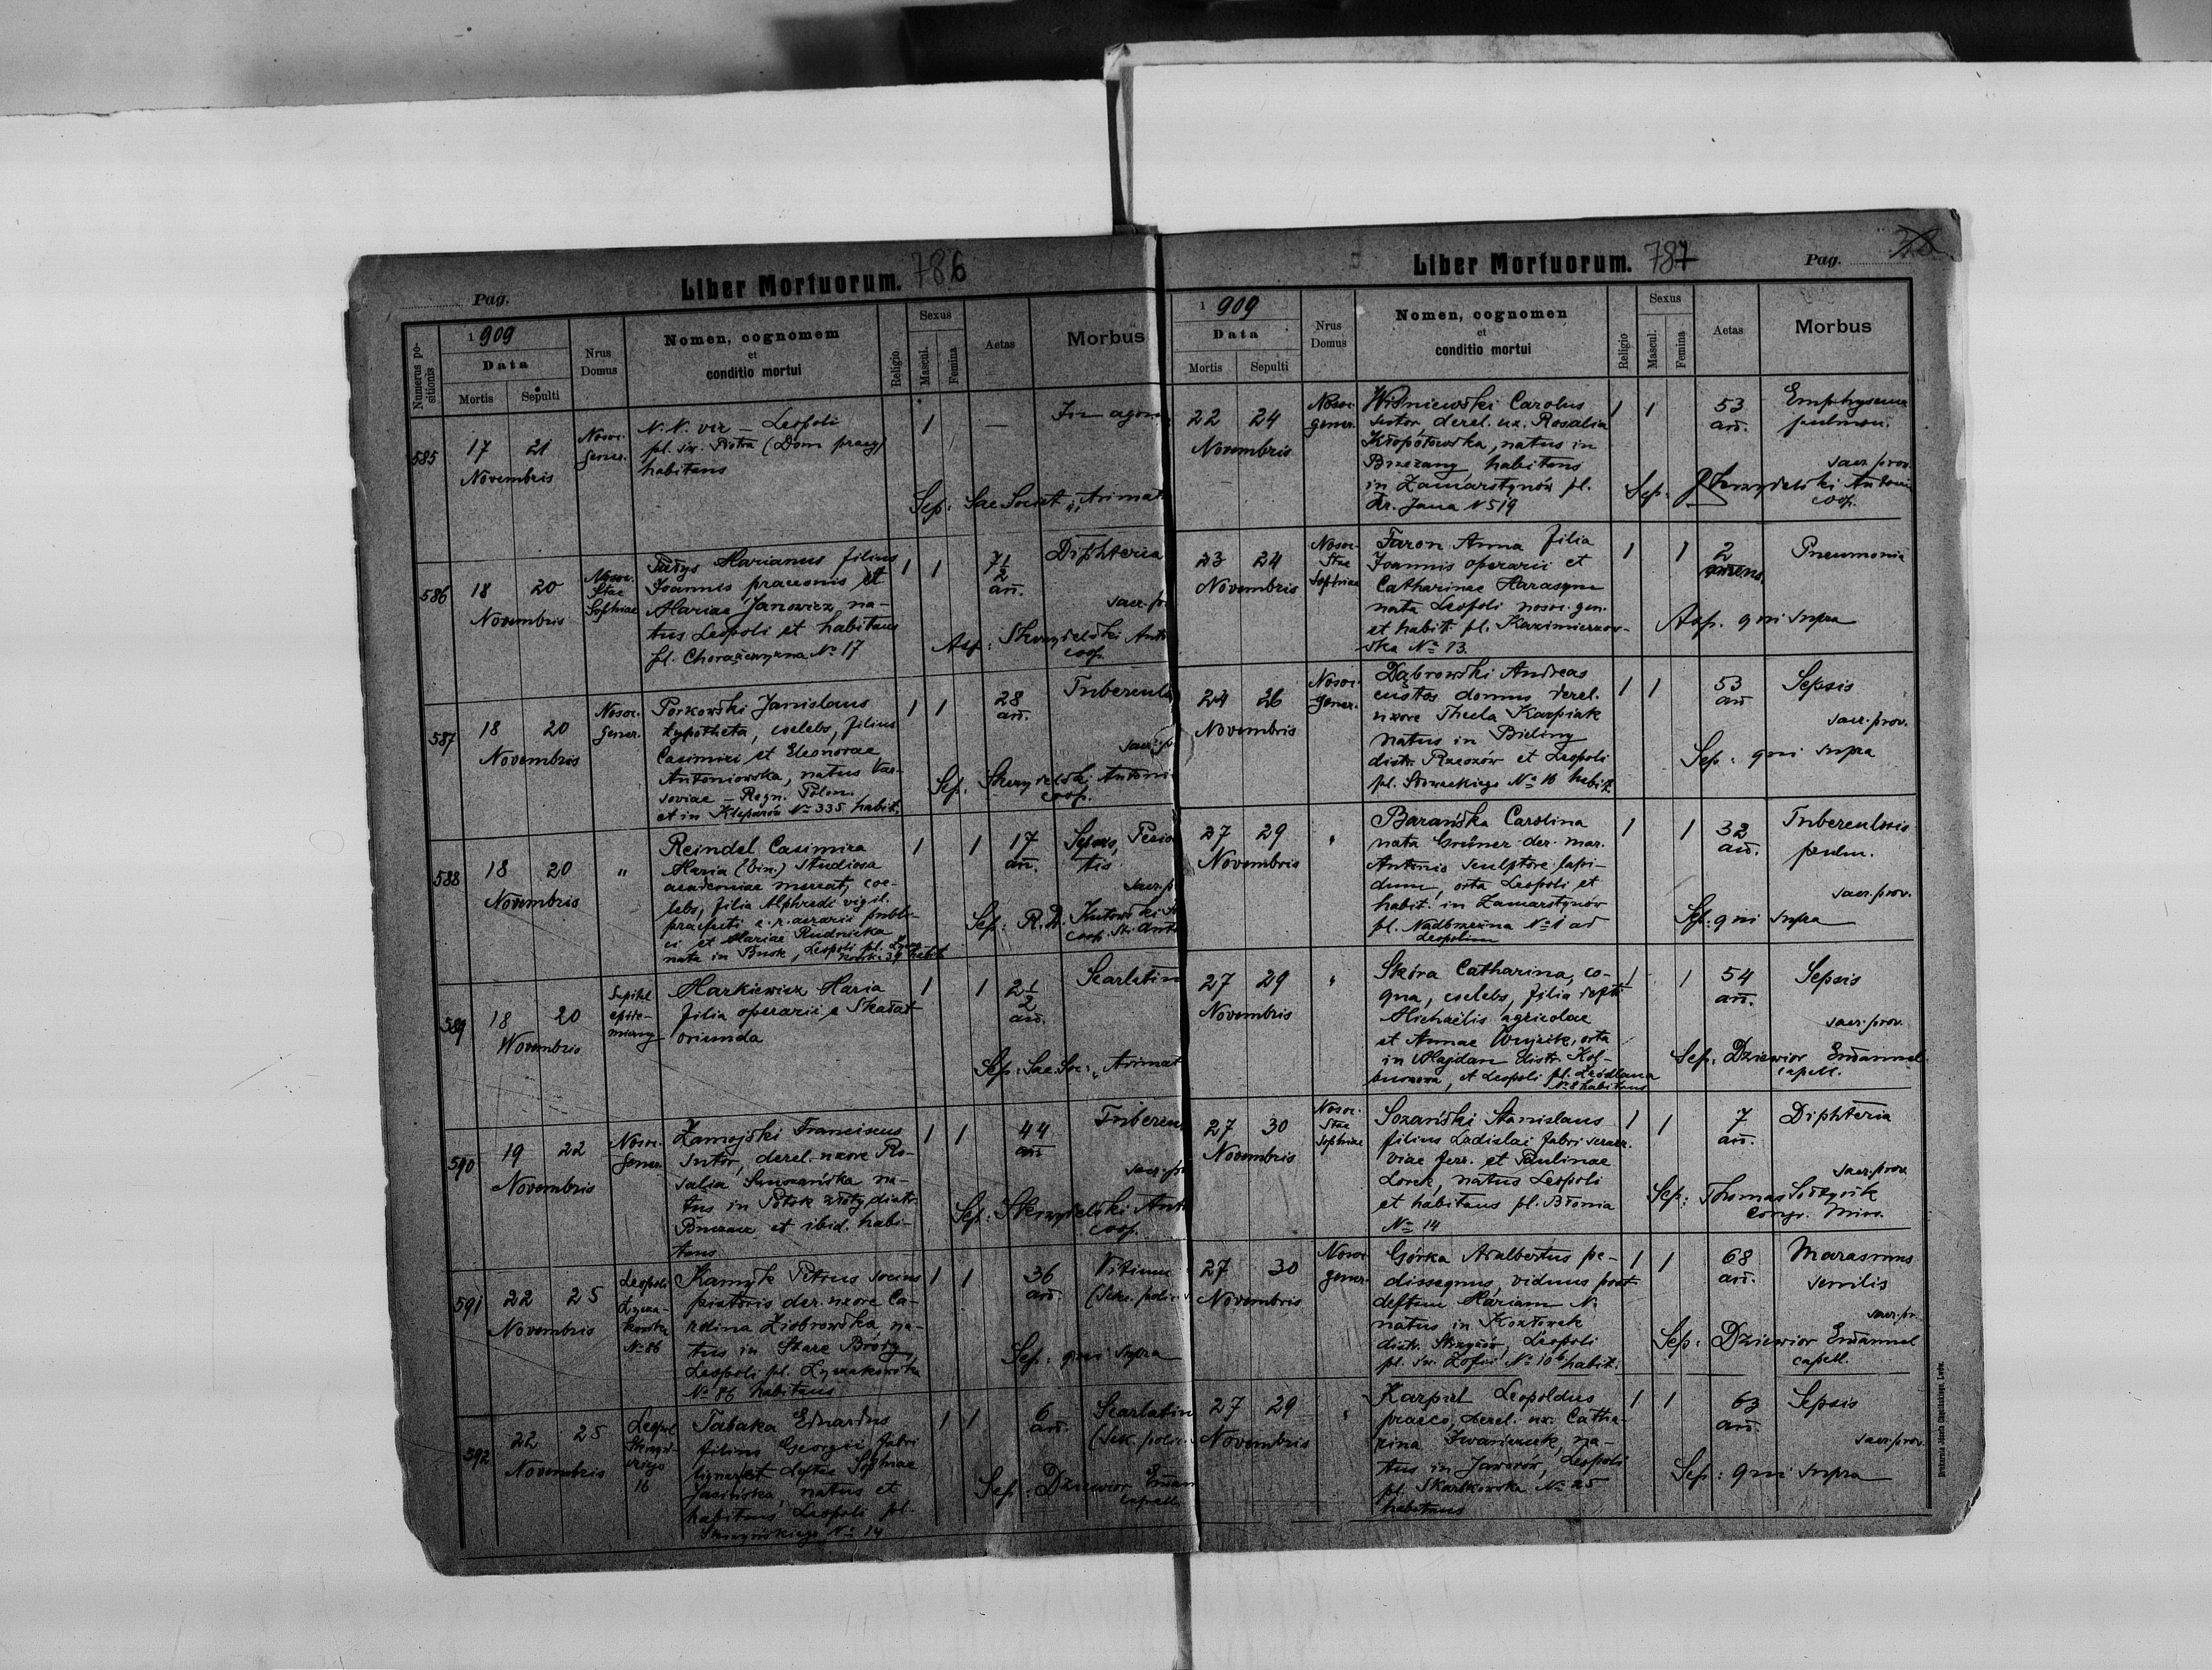 Pag.
Liber Mortuorum. 786
Numerus positionis
1909
Data
Mortis
Sepulti
Nrus Domus
Nomen, cognomem
et
conditio mortui
Religio
Sexus
Mascul.
Femina
Aetas
Morbus
585
17 21
Novembris
Nosoc.
gener.
N. N. vir – Leopoli
pl. św. Piotra (Dom pracy)
habitans
1
—
In agon
Sep: Sae Societ. „Arimat
586
18 20
Novembris
Nosoc.
Stae
Sophiae
Marianus filius
Joannis praeconis et
Mariae Janowicz, na-
tus Leopoli et habitans
pl. Chorążczyzna No 17
1 1
7 1/2
an.
Diphteria
sacr. pr
Asf: Skrzydelski Anto
coop.
587
18 20
Novembris
Nosoc.
gener.
Porkowski Janislaus
typotheta, coelebs, filius
Casimiri et Eleonorae
Antoniowska, natus Var-
soviae – Regn. Polon.
et in Kleparów No 335 habit.
1 1
28
an.
Tubercul
sacr. p
Sep. Skrzydelski Antoni
coop.
588
18 20
Novembris
"
Reindel Casimira
Maria (bin.) studiosa
academiae mercat, coe-
lebs, filia Alphredi vigil.
praefecti c. r. aerarii publi-
ci et Mariae Rudnicka
nata in Busk, Leopoli pl. Łycza-
kowska 39 habit
1 1
17
an.
Sepsis,
tis
sacr. p
Sep: R. D. Kutowski
coop. St. Anto
589
18 20
Novembris
Szpital
epide-
miczny
Markiewicz Maria
filia operarii e Skałat
oriunda
1 1
2 1/2
an.
Scarlatin
Sep: Sae. Soc: „Arimat
590
19 22
Novembris
Nosoc.
gener.
Zamojski Franciscus
sutor, derel. uxore Ro-
salia na-
tus in Potok złoty distr.
Buczacz et ibid. habi-
tans
1 1
44
an
Tubercu
sacr. pr
Sep: Skrzydelski Anto
coop.
591
22 25
Novembris
Leopoli
Łycza-
kowska
No 86
Kamyk Petrus socius
pistoris der. uxore Ca-
rolina Ziobrowska na-
tus in Stare Brody,
Leopoli pl. Łyczakowska
No 86 habitans
1 1
36
an.
Vitium
(Sekc. polic.
Sep: qui supra
592
22 25
Novembris
Leopol
16
Tabaka Eduardus
filius Georgii fabri
lignar. et deftae Sophiae
Jasińska, natus et
habitans Leopoli pl.
Skrzyńskiego No 14
1 1
6
an.
Scarlatin
(Sek. polic.
Sep: Dziewior Eman
capell.
Liber Mortuorum. 787
Pag.
1909
Data
Mortis
Sepulti
Nrus Domus
Nomen, cognomen
et
conditio mortui
Religio
Sexus
Mascul.
Femina
Aetas
Morbus
22 24
Novembris
Nosoc.
gener.
Wiśniewski Carolus
sutor, derel. ux. Rosalia
Kłopotowska, natus in
Brzezany, habitans
in Zamarstynów pl.
Kr. Jana N 519
1 1
53
an.
Emphysema
pulmon.
sacr. prov.
Sep. Skrzydelski Antoni
coop.
23 24
Novembris
Nosoc.
Stae
Sophiae
Faron Anna filia
Joannis operarii et
Catharinae Harasym
nata Leopoli nosoc. gen.
et habit. pl. Kazimierzow-
ska No 13.
1 1
2
mens.
Pneumonia
Asp. qui supra
24 26
Novembris
Nosoc.
gener.
Dąbrowski Andreas
custos domus derel.
uxore Thecla Karpiak
natus in Bieliny
distr. Rzeszów et Leopoli
pl. Słowackiego No 16 habit.
1 1
53
an
Sepsis
sacr. prov.
Sep: qui supra
27 29
Novembris
"
Barańska Carolina
nata Grüner der. mar.
Antonio sculptore lapi-
dum, orta Leopoli et
habit. in Zamarstynów
pl. Nadbrzeżna No 1 ad
Leopolim
1 1
32
an.
Tuberculosis
pulm.
sacr. prov.
Sep: qui supra
27 29
Novembris
"
Skóra Catharina, co-
qua, coelebs, filia defti
Michaëlis agricolae
et Annae Wujcik, orta
in Majdan distr. Kol-
buszowa, et Leopoli pl. Źródlana
No 8 habitans
1 1
54
an.
Sepsis
sacr. prov.
Sep: Dziewior Emanuel
capell.
27 30
Novembris
Nosoc.
Stae
Sophiae
Sozański Stanislaus
filius Ladislai fabri serar.
viae ferr. et Paulinae
Lorek, natus Leopoli
et habitans pl. Błonia
No 14
1 1
7
an.
Diphteria
sacr. prov.
Sep: Thomas Sołtysik
Congr. Miss.
27 30
Novembris
Nosoc
gener.
Górka Adalbertus pe-
dissequus, viduus post
deftam Mariam N.
natus in Kozłowek
distr. Strzyżów, Leopoli
pl. św. Zofii No 10b habit.
1 1
68
an.
Marasmus
senilis
sacr. pr.
Sep: Dziewior Emanuel
capell.
27 29
Novembris
"
Karpiel Leopoldus
praeco, derel. ux. Catha-
rina Iwaniczuk, na-
tus in Jaworów, Leopoli
pl. Skarbkowska No 25
habitans
1 1
63
an.
Sepsis
sacr. prov.
Sep: qui supra
Drukarnia Józefa Chęcińskiego, Lwów.